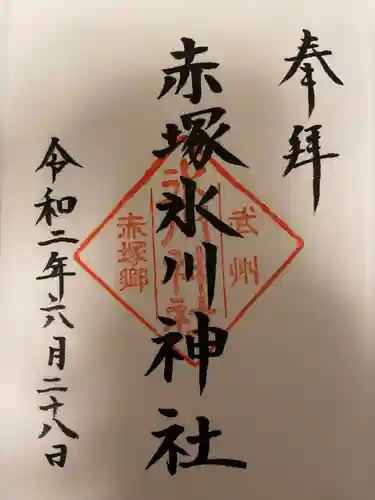 奉拝
赤塚氷川神社
武州
氷川神社
赤塚郷
令和二年六月二十八日